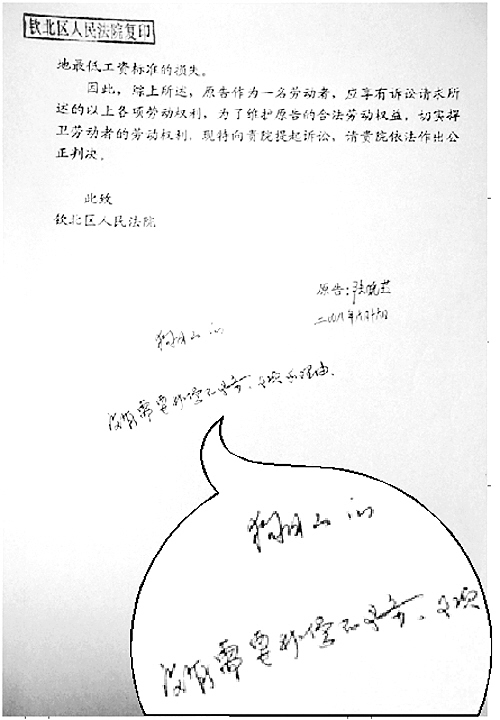 钦北区人民法院复印
地最低工资标准的损失。
因此，综上所述，原告作为一名劳动者，应享有诉讼请求所
述的以上各项劳动权利，为了维护原告的合法劳动权益，切实捍
卫劳动者的劳动权利，现特向贵院提起诉讼，请贵院依法作出公
正判决。
此致
钦北区人民法院
原告：
没有需要
没有需要